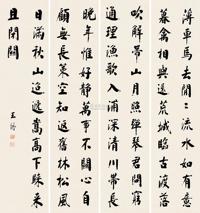 薄車馬去閒閒流水如有意
暮禽相與還荒城臨古渡落
吹解帶山月照彈琴君問窮
通理漁歌入浦深清川帶長
晚年惟好靜萬事不關心自
顧無長策空知返舊林松風
日滿秋山迢遞嵩高下歸來
且閉關
王